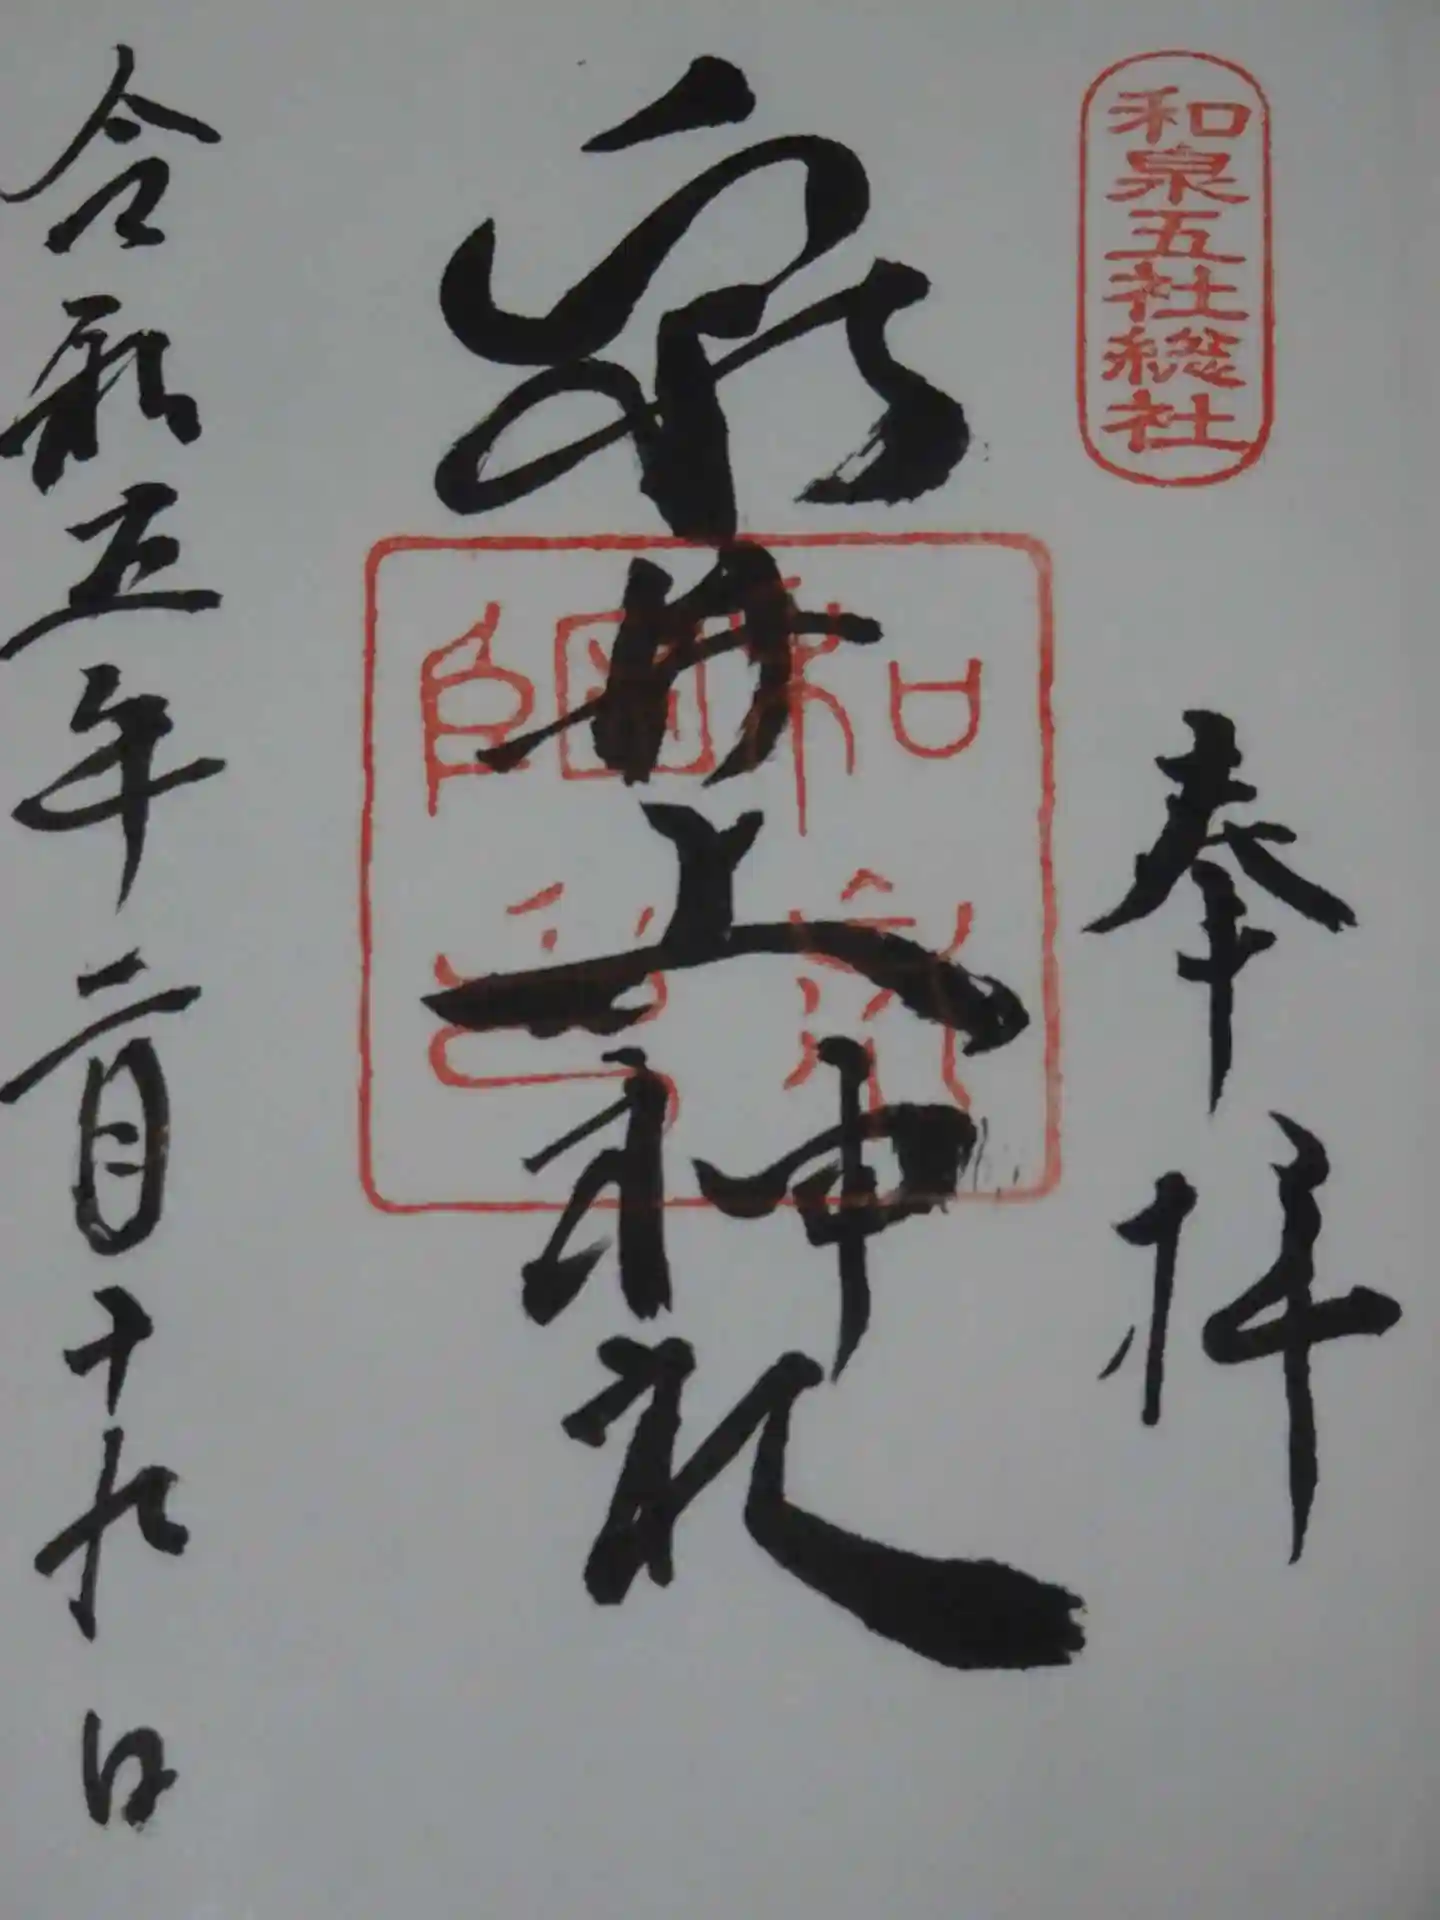 和泉五社総社
奉拝
泉井上神社
令和五年二月十九日